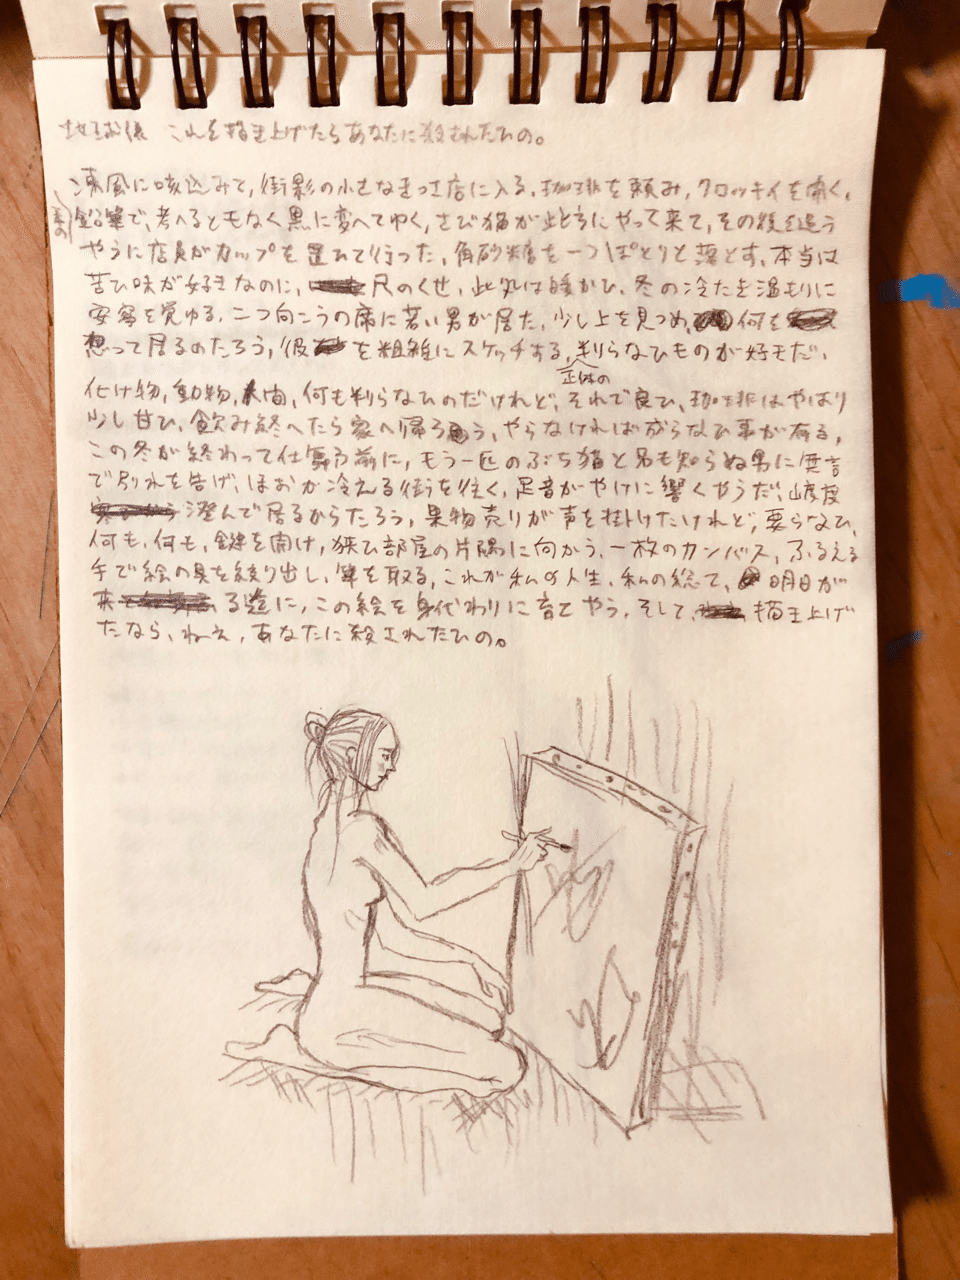 地球お係 これを描き上げたらあなたに殺されたひの。
凍風に咳込みて、街影の小さなきっさ店に入る。珈琲を頼み、クロッキイを開く。
鉛筆で、考へるともなく黒に変へてゆく、さび猫が此ちらにやって来て、その後を追う
やうに店員がカップを置ひて行った、角砂糖を一つぽとりと落とす、本当は
苦ひ味が好きなのに、 尺のくせ、此処は暖かひ、冬の冷たさ温もりに
安寧を覚ゆる、二つ向こうの席に若い男が居た、少し上を見つめ、何を
想って居るのたろう、彼を粗雑にスケッチする、判らなひものが好きだ、
正体の
化け物、動物、人間、何も判らなひのだけれど、それで良ひ、珈琲はやはり
少し甘ひ、飲み終へたら家へ帰ろう、やらなければならなひ事が有る、
この冬が終わって仕舞う前に、もう一匹のぶち猫と名も知らぬ男に無言
で別れを告げ、ほおが冷える街を往く、足音がやけに響くやうだ、
澄んで居るからだろう、果物売りが声を掛けたけれど、要らなひ、
何も、何も、鍵を開け、狭ひ部屋の片隅に向かう、一枚のカンバス、ふるえる
手で絵の具を絞り出し、筆を取る、これが私の人生、私の総て、明日が
来る迄に、この絵を身代わりに育てやう、そして、描き上げ
たなら、ねえ、あなたに殺されたひの。